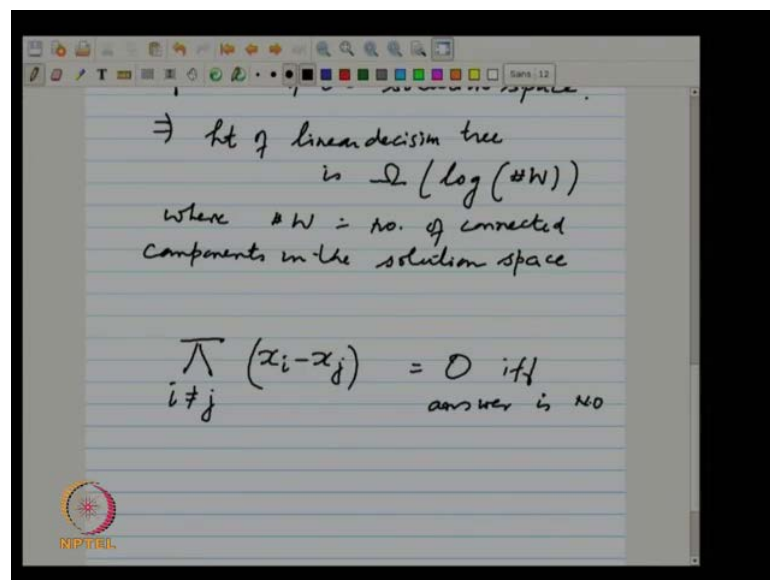 Sans 12
space.
⇒ ht of linear decisim tree
is Ω (log (#W))
where #W = no. of connected
components in the solution space
π (xi-xj) = 0 iff
i ≠ j answer is NO
NPTEL